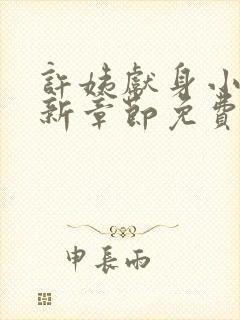 許姊獻身小
新章節免費
申長雨